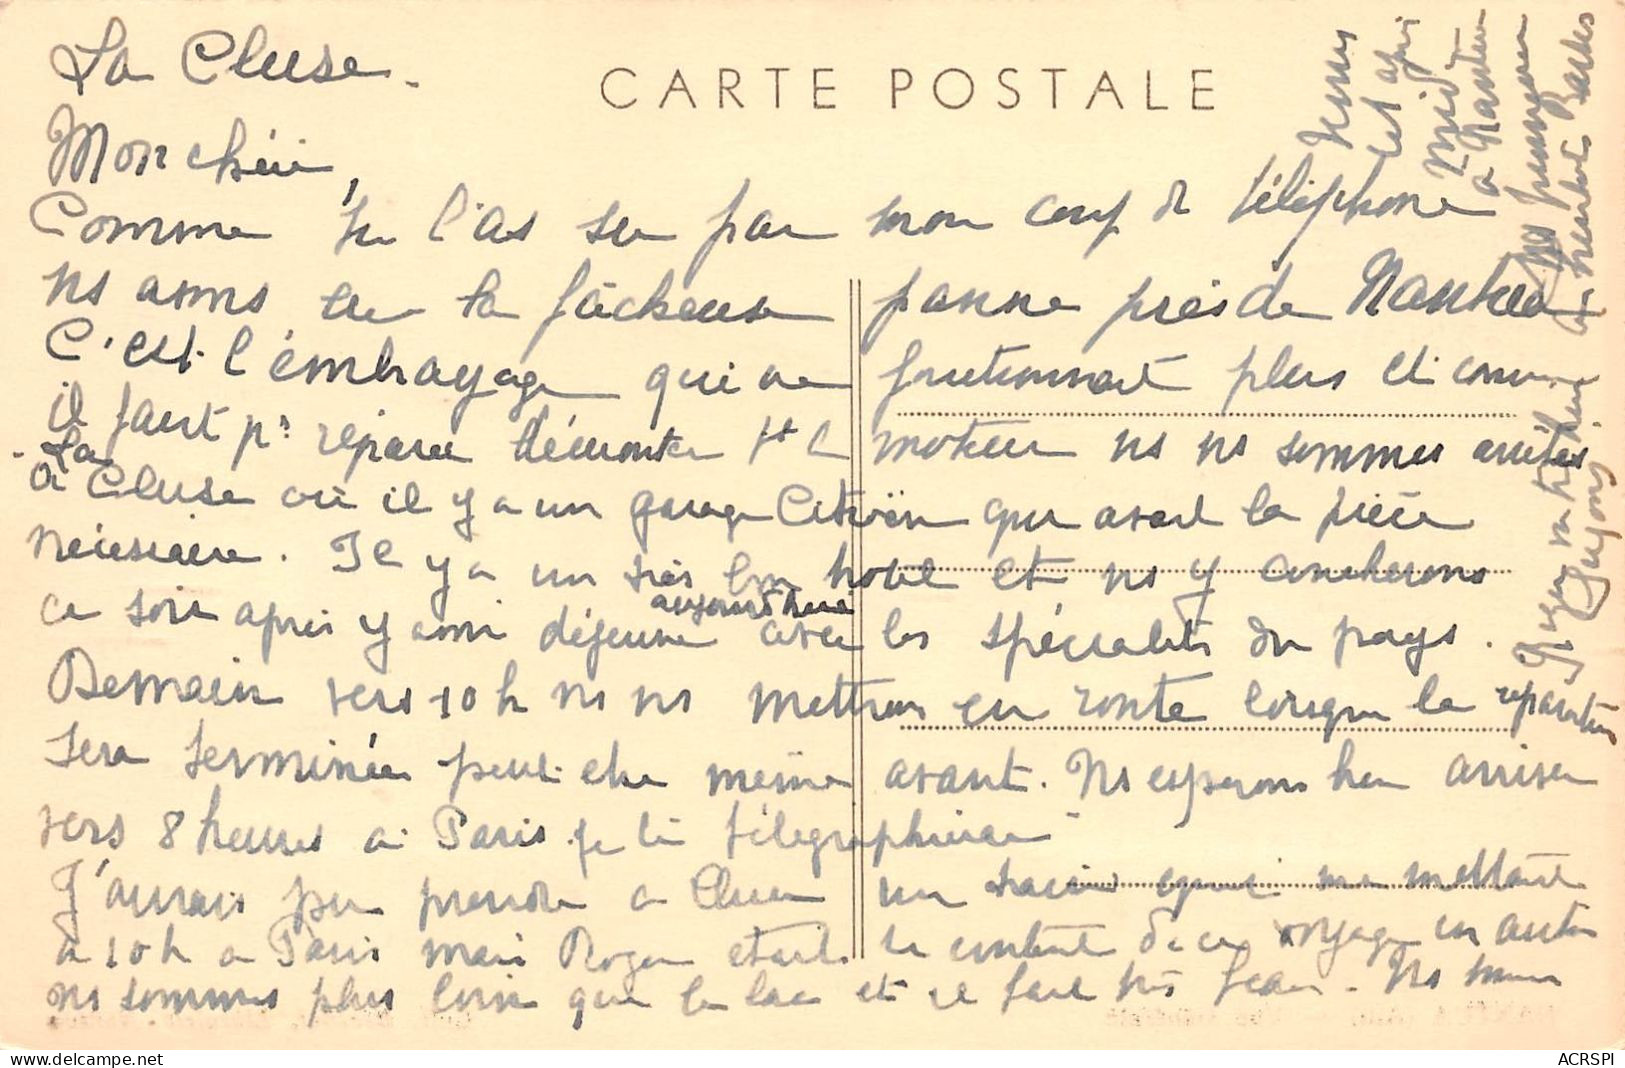 La Cluse.
CARTE POSTALE
Mon chéri,
Comme tu l'as su par mon coup de téléphone
ns avons eu la fâcheuse panne près de Nantua
C'est l'embrayage qui ne fonctionnait plus et comme
il faut pr réparer démonter tt le moteur ns ns sommes arrêtés
à La Cluse où il y a un garage Citroën qui avait la pièce
nécessaire. Il y a un très bon hôtel et ns y coucherons
ce soir après y avoir déjeuné aujourd'hui avec les spécialités du pays.
Demain vers 10 h ns ns mettrons en route lorsque la réparation
sera terminée peut-être même avant. Ns espérons bien arriver
vers 8 heures à Paris je te télégraphierai
J'aurais pu prendre à Cluse un train qui me mettait
à 10 h à Paris mais Roger était si content de ce voyage en auto
ns sommes plus loin que le lac et il fait très beau. Ns
venus
cet après
midi
à Nantua